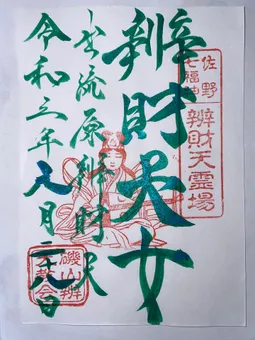 佐野
七福神
辨財天霊場
辨財天女
出流原辨財天
令和三年八月二十八日
磯山辨
天教会